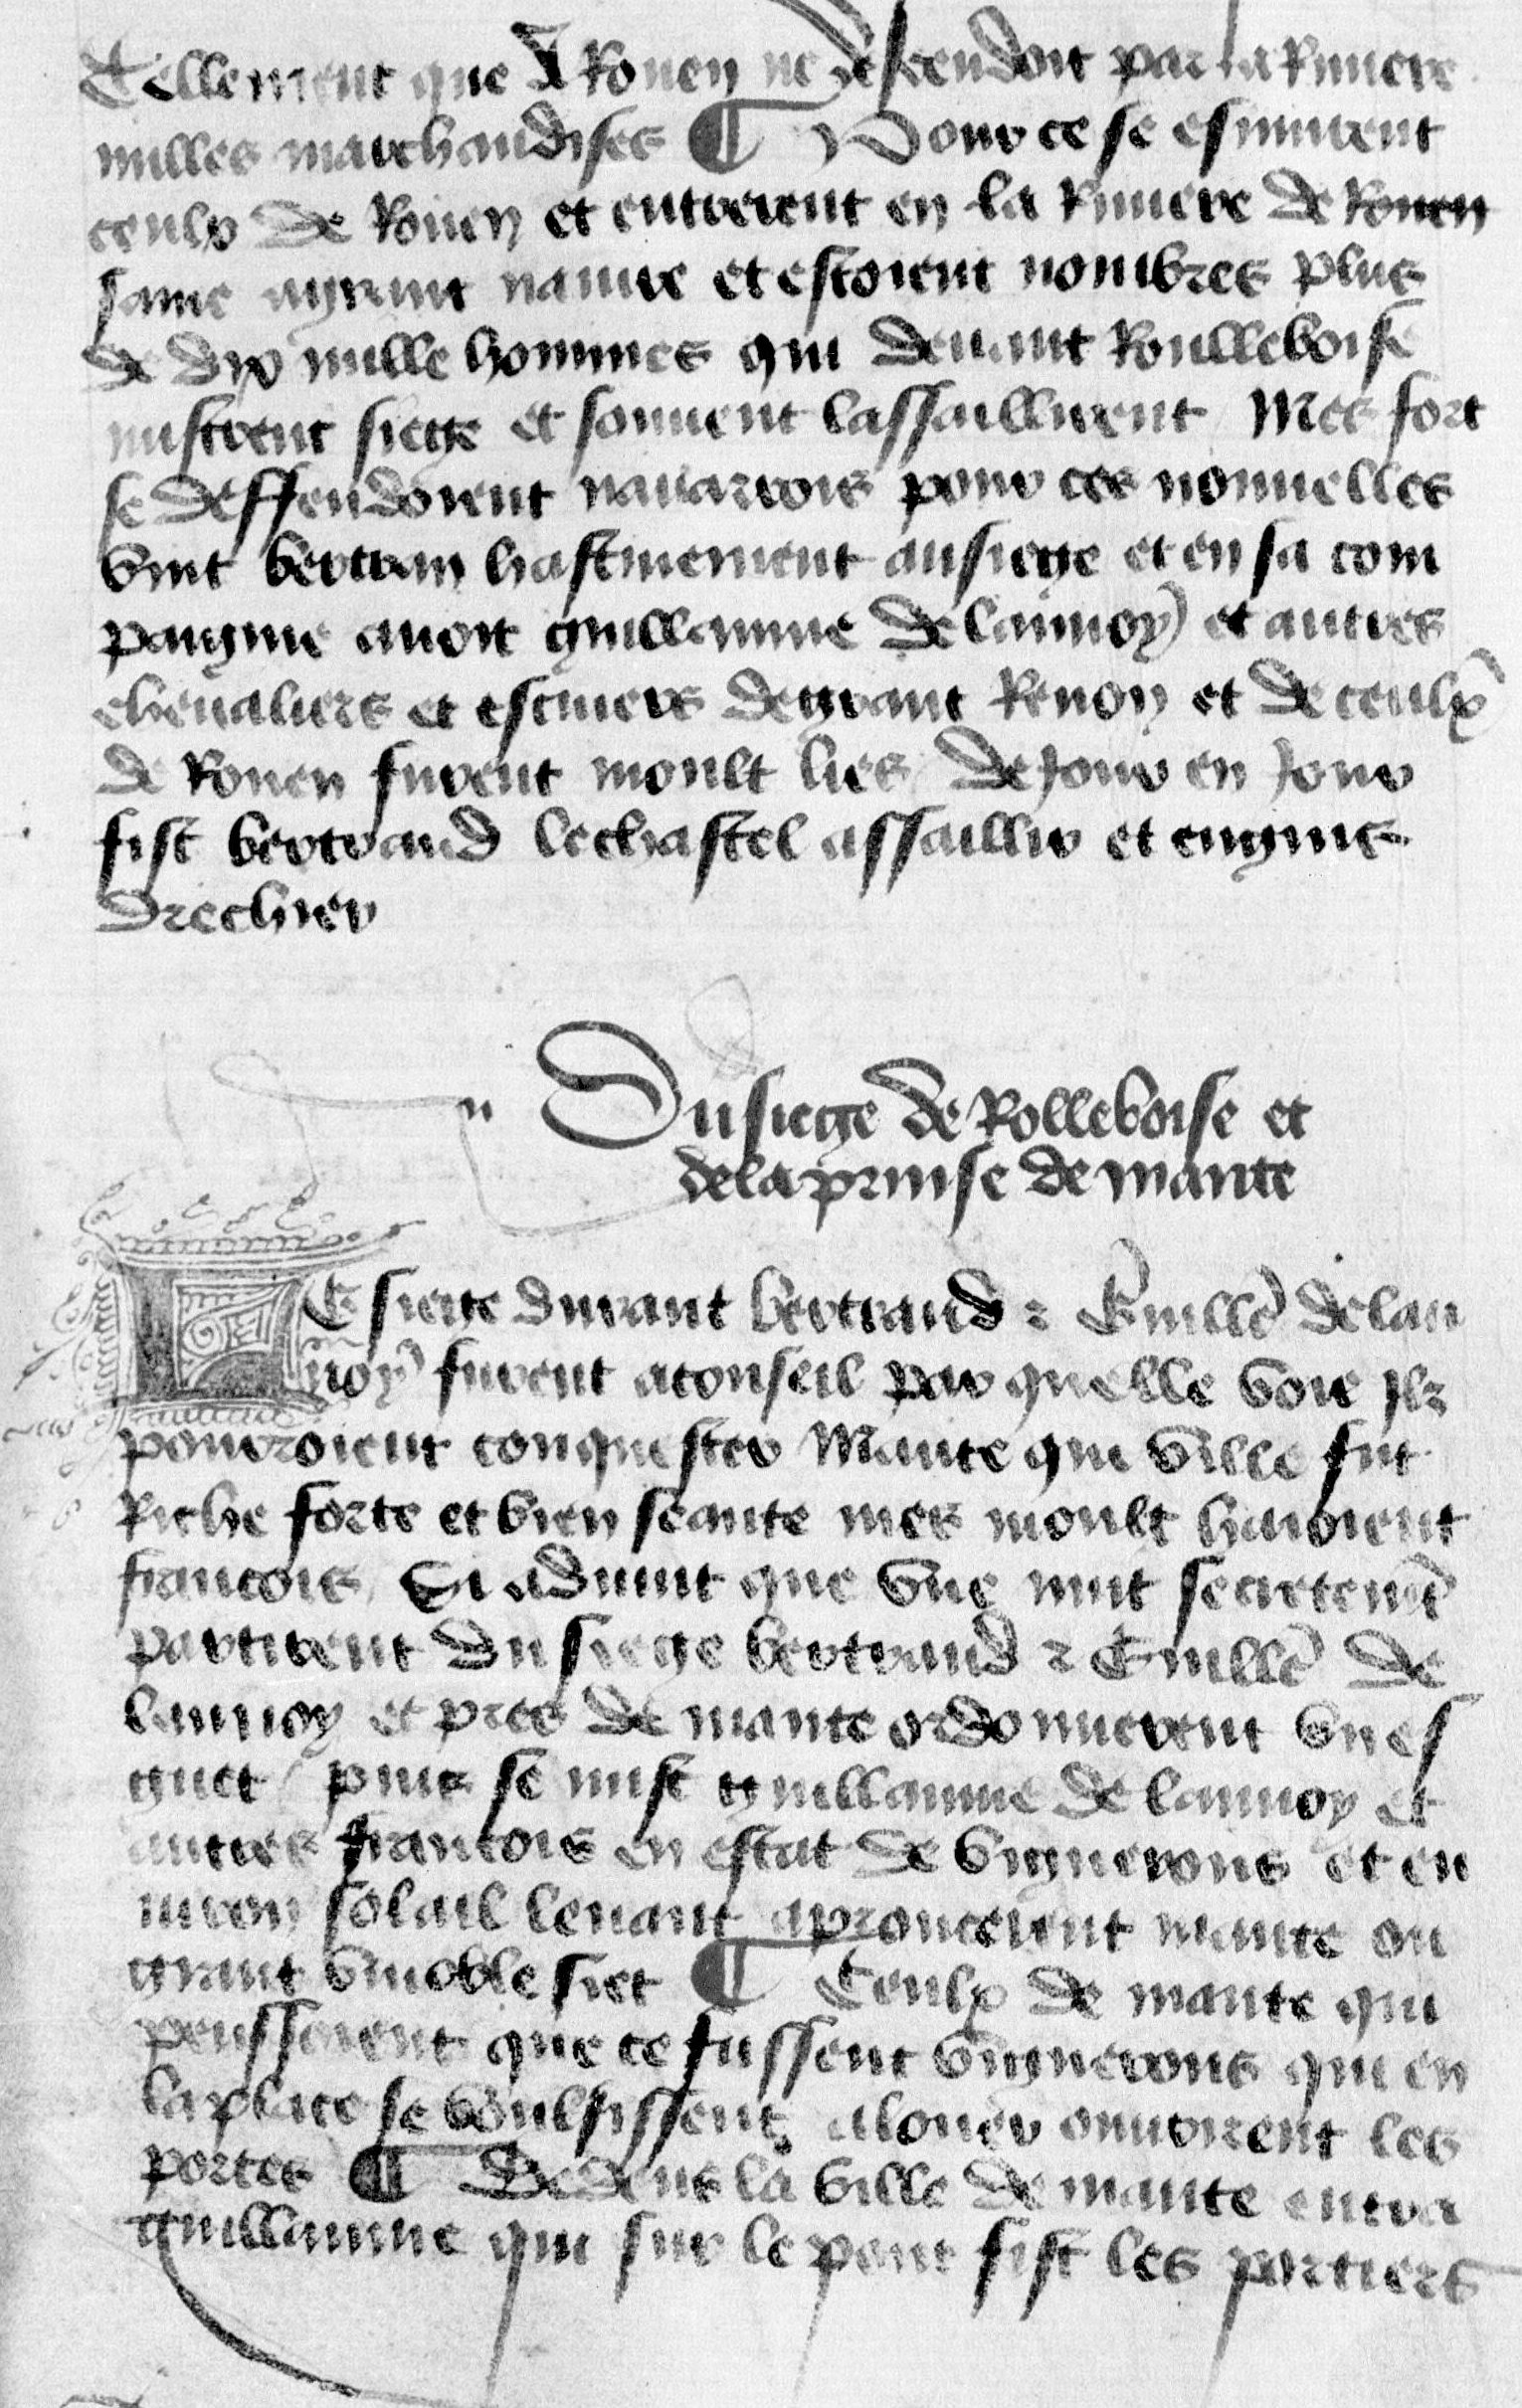 Tellement que A Rouen ne descendoit par la Riuiere
nulles marchandises ¶ Pour ce se esmurent
ceulx de Rouen et entrerent en la Riuiere de Rouen
saine  nauire et estoient nombres plus
de dix mille hommes qui deuant Roulleboise
mistrent siege et souuent lassaillirent Mes fort
se deffendoient nauarrois pour ces nouuelles
vint bertran hastiuement au siege et en sa com
paignie auoit guillaume de launoy et autres
cheualiers et escuiers de grant Renon et de ceulx
de Rouen furent moult lies de Jour en Jour
fist bertrand le chastel assaillir et engins
drechier
Du siege de Rolleboise et
de la prinse de mante
LE siege durant bertrand ⁊ Guille de lau
noy furent a conseil par quelle voie Ilz
pourroient conquester Mante qui ville fut
Riche forte et bien seante mes moult haioient
francois Si aduint que vne nuit secretemt
partirent du siege bertrand ⁊ Guille de
launoy et pres de mante ordonnerent vn es
guet puis se mist guillaume de launoy et
autres francois en estat de vignerons et en
uiron solail leuant aproucerent mante ou
grant vinoble siet ¶ Ceulx de mante qui
penssoient que ce fussent vignerons qui en
la place se voulsissent alouer ouurirent les
portes ¶ Dedens la ville de mante entra
guillaume qui sur le pont fist les portiers